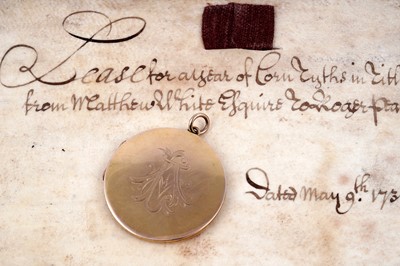 Lease for a year of Corn Tyths in Titl
from Matthew White Esquire To Roger Pea
Dated May 9th. 173